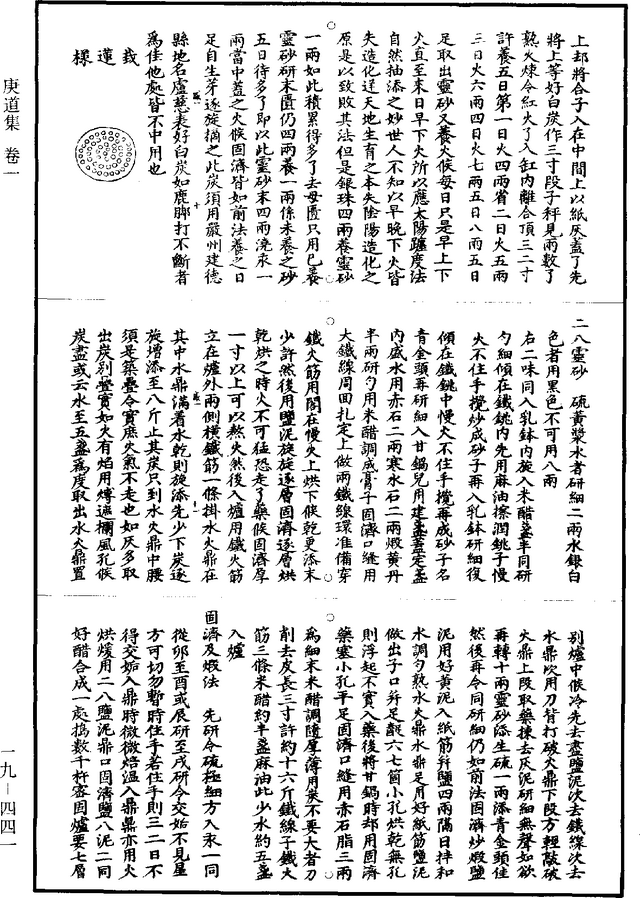 庚道集　卷一
上却將合子入在中間上以紙灰蓋了先
將上等好白炭作三寸段子秤見兩數了
熟火煉令紅火了入缸內離合頂三二寸
許養五日第一日火四兩省二日火五兩
三日火六兩四日火七兩五日八兩五日
足取出靈砂又養火候每日只是早上下
火直至來日早下火所以應太陽躔度法
自然抽添之妙世人不知以早晚下火皆
失造化逆天地生育之本失陰陽造化之
原是以致敗其法但是銀珠四兩養靈砂
一兩如此積累得多了去母匱只用已養
靈砂研末匱仍四兩養一兩係未養之砂
五日待多了即以此靈砂末四兩澆汞一
兩當中蓋之火候固濟皆如前法養之日
足自生芽逐旋摘之此炭須用嚴州建德
縣地名蘆慈裹好白炭如鹿脚打不斷者
為佳他處皆不中用也
栽蓮樣
二八靈砂　硫黃漿水者研細二兩水銀白
色者用黑色不可用八兩
右二味同入乳鉢內旋入米醋盞半同研
勺細傾在鐵銚內先用麻油擦潤銚子慢
火不住手攪炒成砂子再入乳鉢研細復
傾在鐵銚中慢火不住手攪再成砂子名
青金頭再研細入甘鍋兒用建盞蓋定盞
內盛水用赤石二兩寒水石二兩煅黃丹
半兩研勺用米醋調成膏子固濟口縫用
大鐵線周囬扎定上做兩鐵線環准備穿
鐵火筯用閣在慢火上烘下候乾更添末
少許然後用鹽泥旋旋逐層固濟逐層烘
乾烘之時火不可猛恐走了藥候固濟厚
一寸以上可以熬火然後入爐用鐵火筯
立在爐外兩側橫鐵筯一條掛水火鼎在
其中水鼎滿着水乾則旋添先少下炭逐
旋增添至八斤止其炭只到水火鼎中腰
須是築疊令實庶火氣不走也如灰多取
出炭別疊實如火有焰用塼遮攔風孔候
炭盡或云水至五盞為度取出水火鼎置
別爐中候冷先去盡鹽泥次去鐵線次去
水鼎次用刀背打破火鼎下段方輕敲破
火鼎上段取藥揀去灰泥研細無聲如欲
再轉十兩靈砂添生硫一兩添青金頭住
然後再令同研細仍如前法固濟炒煅鹽
泥用好黃泥入紙筋幷鹽四兩隔日拌和
水調勺熟水火鼎水鼎足用好紙筋鹽泥
做出子口幷足觀六七箇小孔烘乾無孔
則浮起不實入藥後將甘鍋時却用固濟
藥塞小孔平足固濟口縫用赤石脂三兩
為細末米醋調隨厚薄用炭不要大者刀
削去皮長三寸許約十六斤鐵線子鐵火
筯三條米醋約半盞麻油此少水約五盞
入爐
固濟及煅法　先研令硫極細方入汞一同
從卯至酉或展研至戌研令交姤不見星
方可切勿暫時住手若住手則三二日不
得交姤入鼎時微微焙溫入鼎鼎亦用火
烘煖用二八鹽泥鼎口固濟鹽八泥二同
好醋合成一處搗數千杵密固爐要七層
一九－四四一